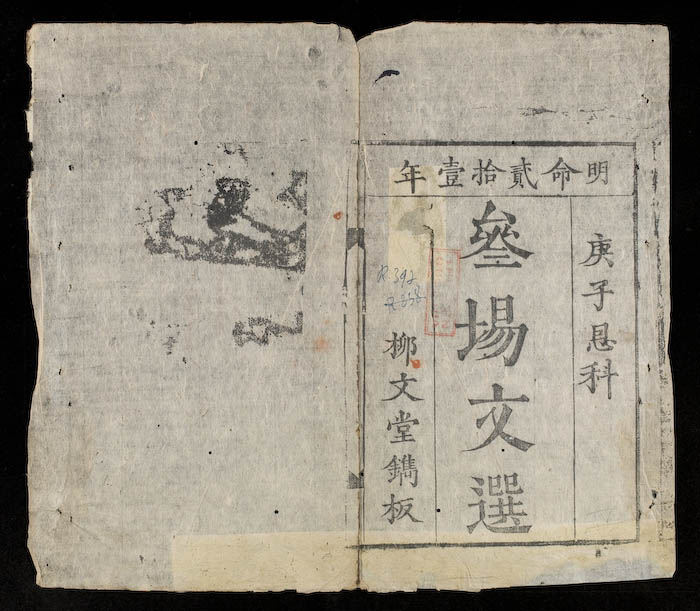 明命貳拾壹年
庚子恩科
叅場文選
柳文堂鐫板
R.392